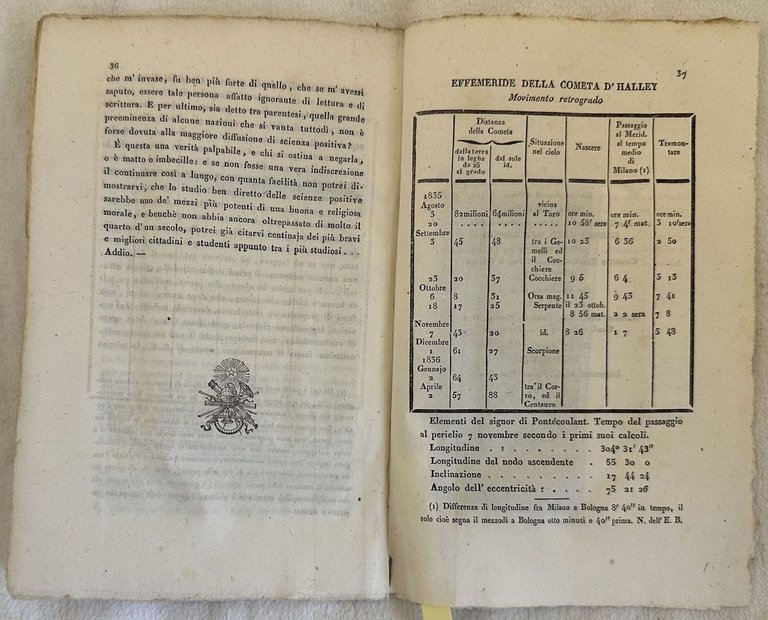 36
che m' invase, fu ben più forte di quello, che se m' avessi
saputo, essere tale persona affatto ignorante di lettura e di
scrittura. E per ultimo, sia detto tra parentesi, quella grande
preeminenza di alcune nazioni che si vanta tuttodì, non è
forse dovuta alla maggiore diffusione di scienza positiva?
È questa una verità palpabile, e chi si ostina a negarla,
o è matto o imbecille: e se non fosse una vera indiscrezione
il continuare così a lungo, con quanta facilità non potrei di-
mostrarvi, che lo studio ben diretto delle scienze positive
sarebbe uno de' mezzi più potenti di una buona e religiosa
morale, e benchè non abbia ancora oltrepassato di molto il
quarto d'un secolo, potrei già citarvi centinaja dei più bravi
e migliori cittadini e studenti appunto tra i più studiosi . . .
Addio. —
37
EFFEMERIDE DELLA COMETA D' HALLEY
Movimento retrogrado
Distanza
della Cometa
dalla terra
in leghe
da 25
al grado
dal sole
id.
Situazione
nel cielo
Nascere
Passaggio
al Merid.
al tempo
medio
di
Milano (1)
Tramon-
tare
1835
Agosto vicina
3 82 milioni 64 milioni al Toro ore min. ore min. ore min.
20 . . . . . . . . . . 10 58' sera 7 4' mat. 3 10' sera
Settembre
3 45 48 tra i Ge- 10 23 6 36 2 50
melli ed
il Coc-
chiere
23 20 37 Cocchiere 9 5 6 4 3 13
Ottobre
6 8 31 Orsa mag. 11 45 9 43 7 41
18 17 25 Serpente il 23 ottob.
8 56 mat. 2 2 sera 7 8
Novembre
7 43 20 id. 8 26 1 7 5 48
Dicembre
1 61 27 Scorpione
1836
Gennajo
2 64 43
Aprile tra'il Cor-
2 57 88 vo, ed il
Centauro
Elementi del signor di Pontécoulant. Tempo del passaggio
al perielio 7 novembre secondo i primi suoi calcoli.
Longitudine . : . . . . . . . 304° 31' 43''
Longitudine del nodo ascendente . 55 30 0
Inclinazione . . . . . . . . . 17 44 24
Angolo dell' eccentricità : . . . . 75 21 26
(1) Differenza di longitudine fra Milano e Bologna 8' 40'' in tempo, il
sole cioè segna il mezzodì a Bologna otto minuti e 40'' prima. N. dell' E. B.